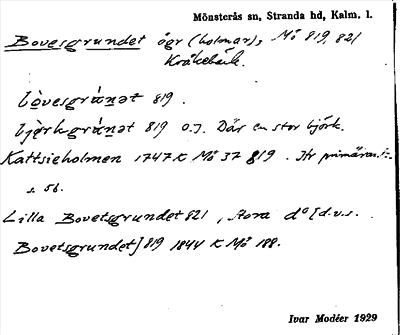 Mönsterås sn, Stranda hd, Kalm. l.
Bovesgrundet ögr (holmar), Mö 819, 821
Kråkebäck.
bòvesgrún̲ət 819.
bjö̀rkgrún̲ət 819 o.J. Där en stor björk.
Kattsieholmen 1747 K Mö 37 819. Hr primärant.
s. 56.
Lilla Bovetsgrundet 821, Stora d:o [d.v.s.
Bovetsgrundet] 819 1844 K Mö 188.
Ivar Modéer 1929